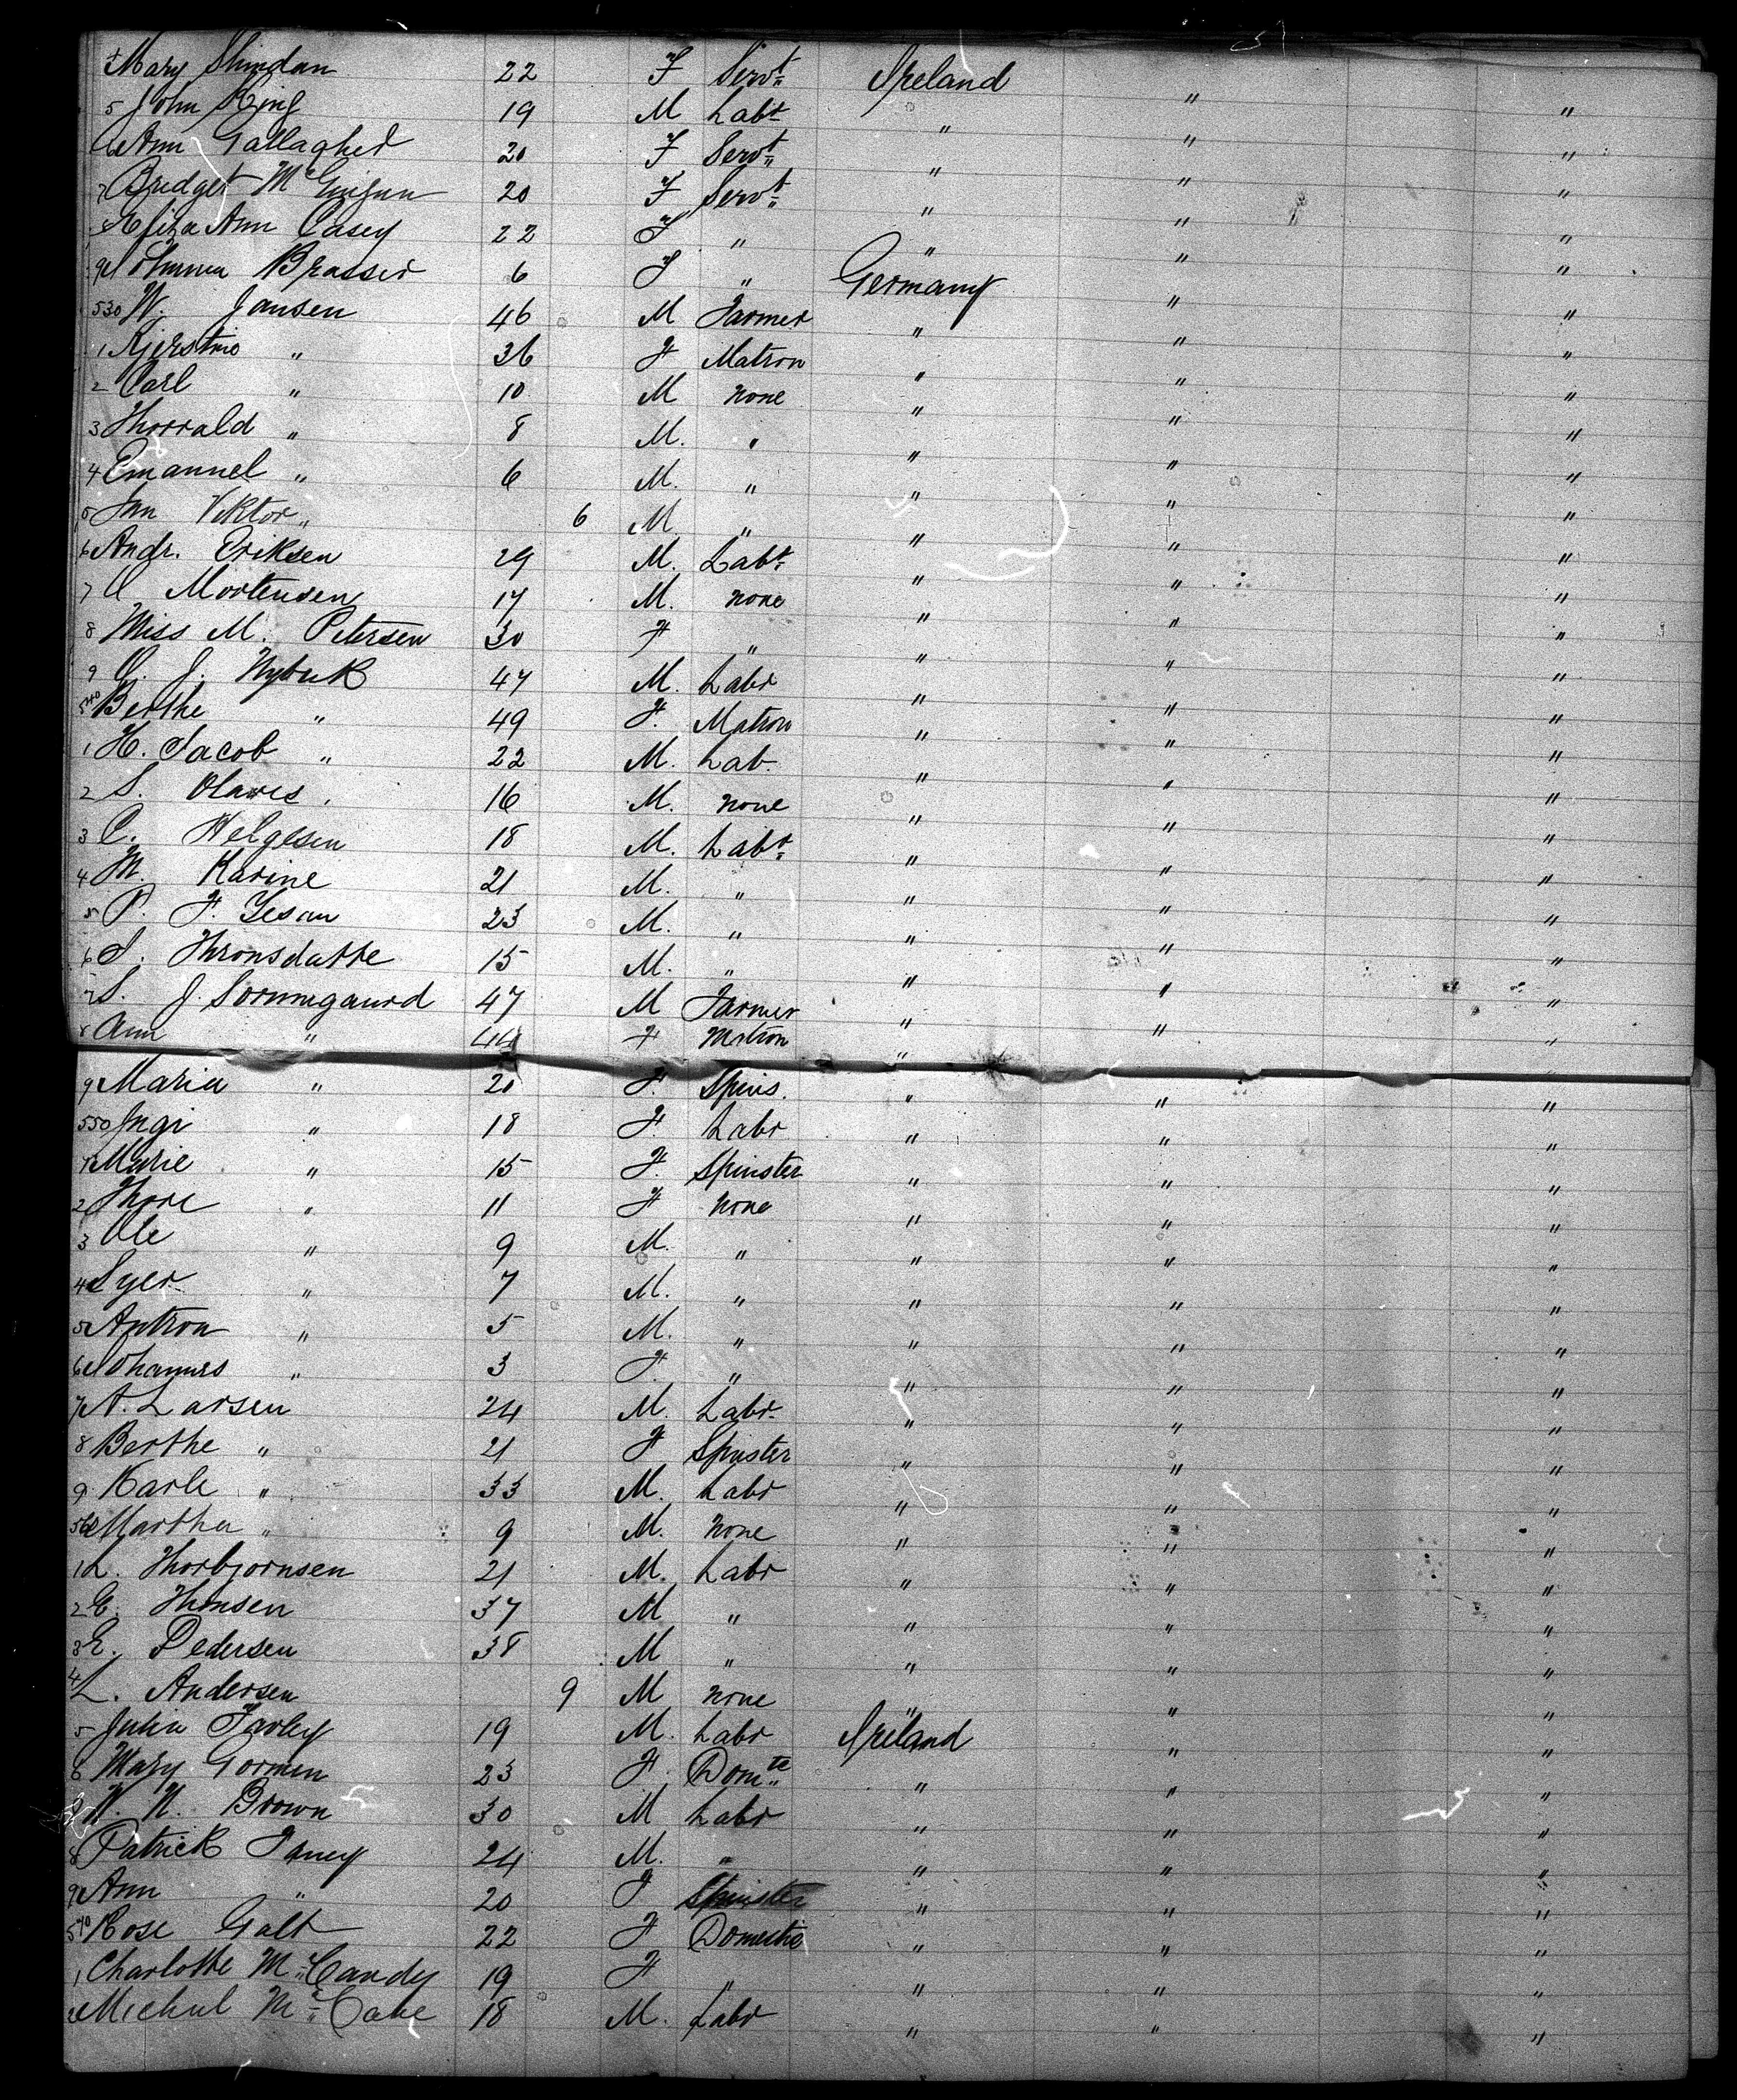 4 Mary 22 F Servt Ireland " "
5 John King 19 M Labr " " "
6 Ann Gallagher 20 F Servt " " "
7 Bridget McGuigan 20 F Servt " " "
8 Eliza Ann Casey 22 F " " " "
9 Brasser 6 F " Germany " "
530 W. Jansen 46 M Farmer " " "
1 " 36 F Matron " " "
2 Carl " 10 M none " " "
3 Thorrald " 8 M. " " " "
4 Emanuel " 6 M. " " " "
5 Jan Viktor " 6 M. " " " "
6 Andr. Eriksen 29 M. Labr " " "
7 O Mortensen 17 M. none " " "
8 Miss M. Petersen 30 F " " " "
9 O. J. 47 M. Labr " " "
540 Berthe " 49 F. Matron " " "
1 H. Jacob " 22 M. Lab. " " "
2 S. 16 M. none " " "
3 C. Helgesen 18 M. Labr " " "
4 M. Karine 21 M. " " " "
5 P. F. 23 M. " " " "
6 S. Thronsdatte 15 M. " " " "
7 S. J. 47 M Farmer " " "
8 Ann " 44 F Matron " " "
9 Maria " 20 F. Spins. " " "
550 Ingi " 18 F. Labr " " "
1 Marie " 15 F. Spinster " " "
2 Thore " 11 F none " " "
3 Ole " 9 M. " " " "
4 Syer " 7 M. " " " "
5 Antron " 5 M. " " " "
6 Johannes " 3 F. " " " "
7 A. Larsen 24 M. Labr. " " "
8 Berthe " 21 F Spinster " " "
9 Karle " 33 M. Labr " " "
560 Martha " 9 M. none " " "
1 L. Thorbjornsen 21 M. Labr " " "
2 E. 37 M " " " "
3 E. Pedersen 38 M " " " "
4 L. Andersen 9 M none " " "
5 Julia Farley 19 M. Labr Ireland " "
6 Mary Gormen 23 F. Domtc " " "
7 W. N. Brown 30 M Labr " " "
8 Patrick 24 M. " " " "
9 Ann " 20 F Spinster " " "
570 Rose Galt 22 F Domestic " " "
1 Charlotte McCandy 19 F " " " "
2 Michul McCabe 18 M. Labr " " "